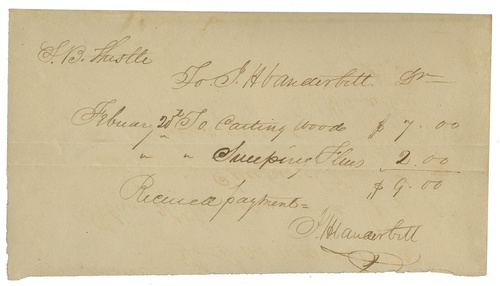 S. B. Thistle
To J. H Vanderbilt Dr
Febuary 20th To Carting Wood $ 7.00
" " " Sweeping Flues 2.00
$ 9.00
Recieved payment
J. H Vanderbilt